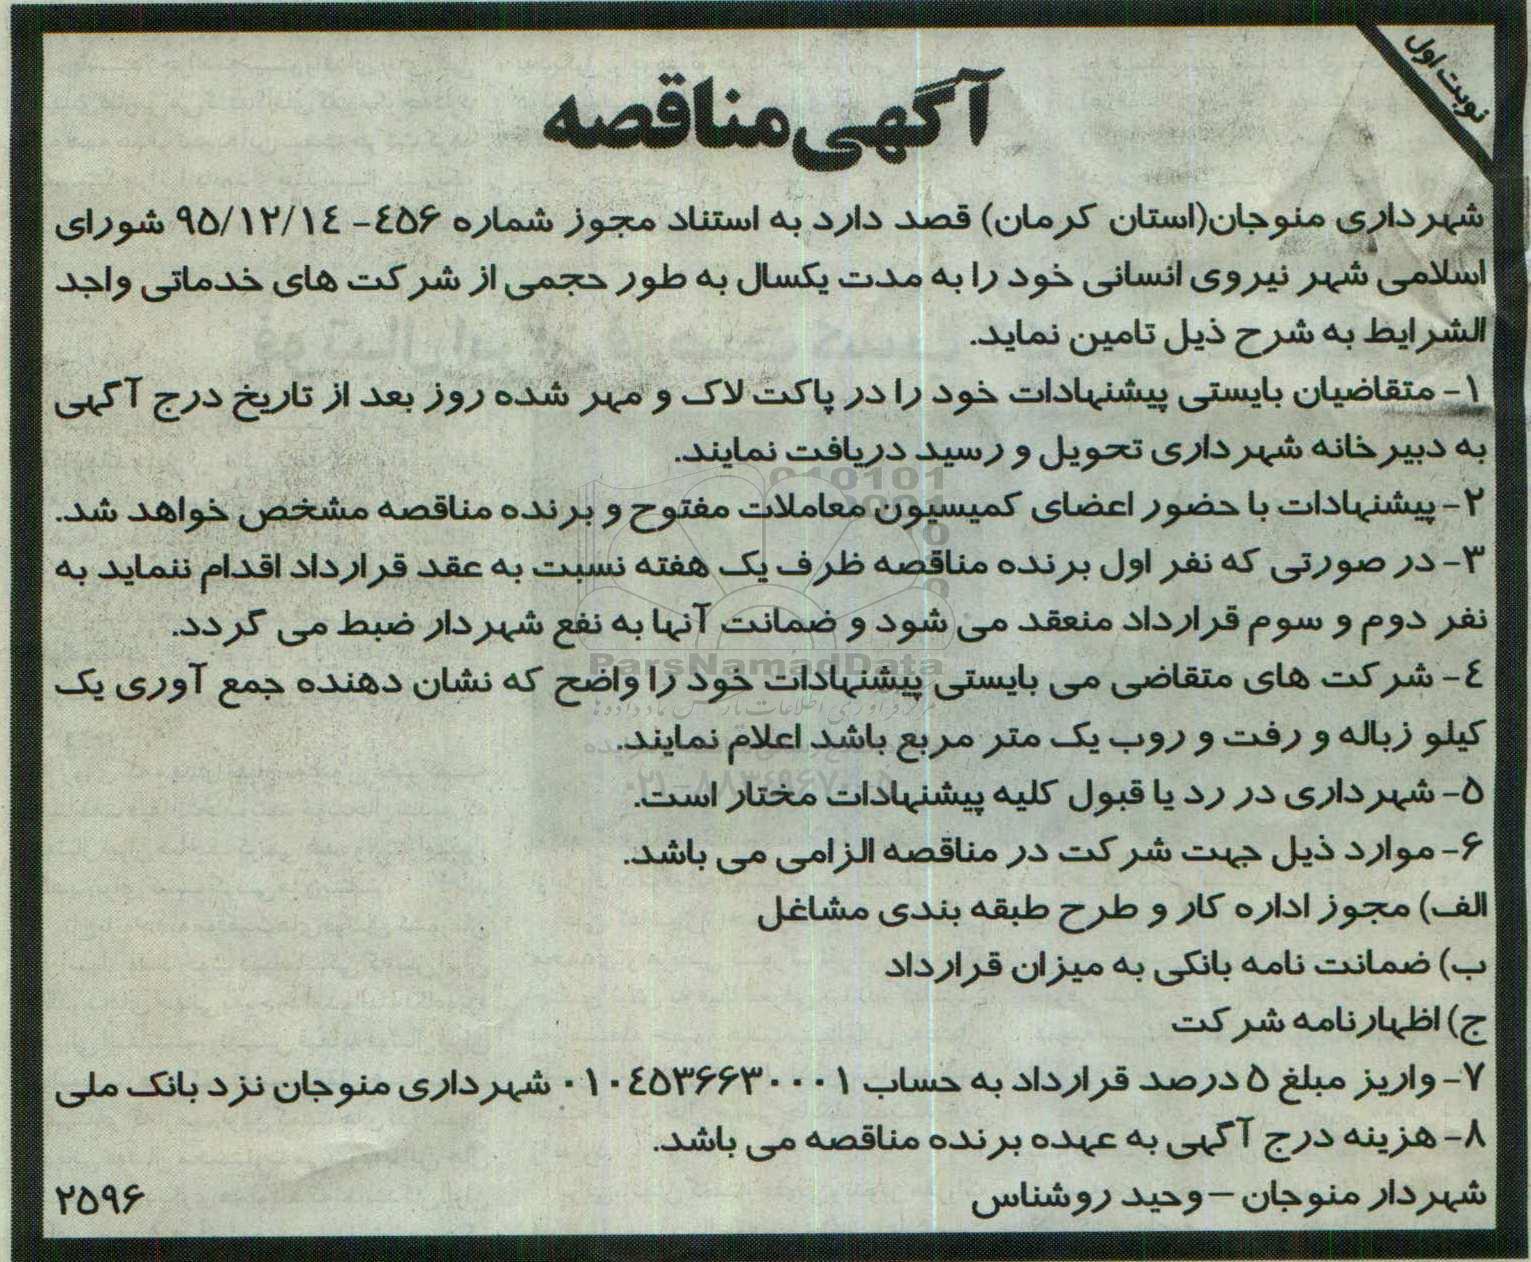 نوبت اول
آگهی مناقصه
شهرداری منوجان(استان کرمان) قصد دارد به استناد مجوز شماره ۴۵۶- ۹۵/۱۲/۱۴ شورای
اسلامی شهر نیروی انسانی خود را به مدت یکسال به طور حجمی از شرکت های خدماتی واجد
الشرایط به شرح ذیل تامین نماید.
۱- متقاضیان بایستی پیشنهادات خود را در پاکت لاک و مهر شده روز بعد از تاریخ درج آگهی
به دبیرخانه شهرداری تحویل و رسید دریافت نمایند.
۲- پیشنهادات با حضور اعضای کمیسیون معاملات مفتوح و برنده مناقصه مشخص خواهد شد.
۳- در صورتی که نفر اول برنده مناقصه ظرف یک هفته نسبت به عقد قرارداد اقدام ننماید به
نفر دوم و سوم قرارداد منعقد می شود و ضمانت آنها به نفع شهردار ضبط می گردد.
ParsNamadData
۴- شرکت های متقاضی می بایستی پیشنهادات خود را واضح که نشان دهنده جمع آوری یک
کیلو زباله و رفت و روب یک متر مربع باشد اعلام نمایند.
۵- شهرداری در رد یا قبول کلیه پیشنهادات مختار است.
۶- موارد ذیل جهت شرکت در مناقصه الزامی می باشد.
الف) مجوز اداره کار و طرح طبقه بندی مشاغل
ب) ضمانت نامه بانکی به میزان قرارداد
ج) اظهارنامه شرکت
۷- واریز مبلغ ۵ درصد قرارداد به حساب ۰۱۰۴۵۳۶۶۳۰۰۰۱ شهرداری منوجان نزد بانک ملی
۸- هزینه درج آگهی به عهده برنده مناقصه می باشد.
شهردار منوجان – وحید روشناس
۲۵۹۶